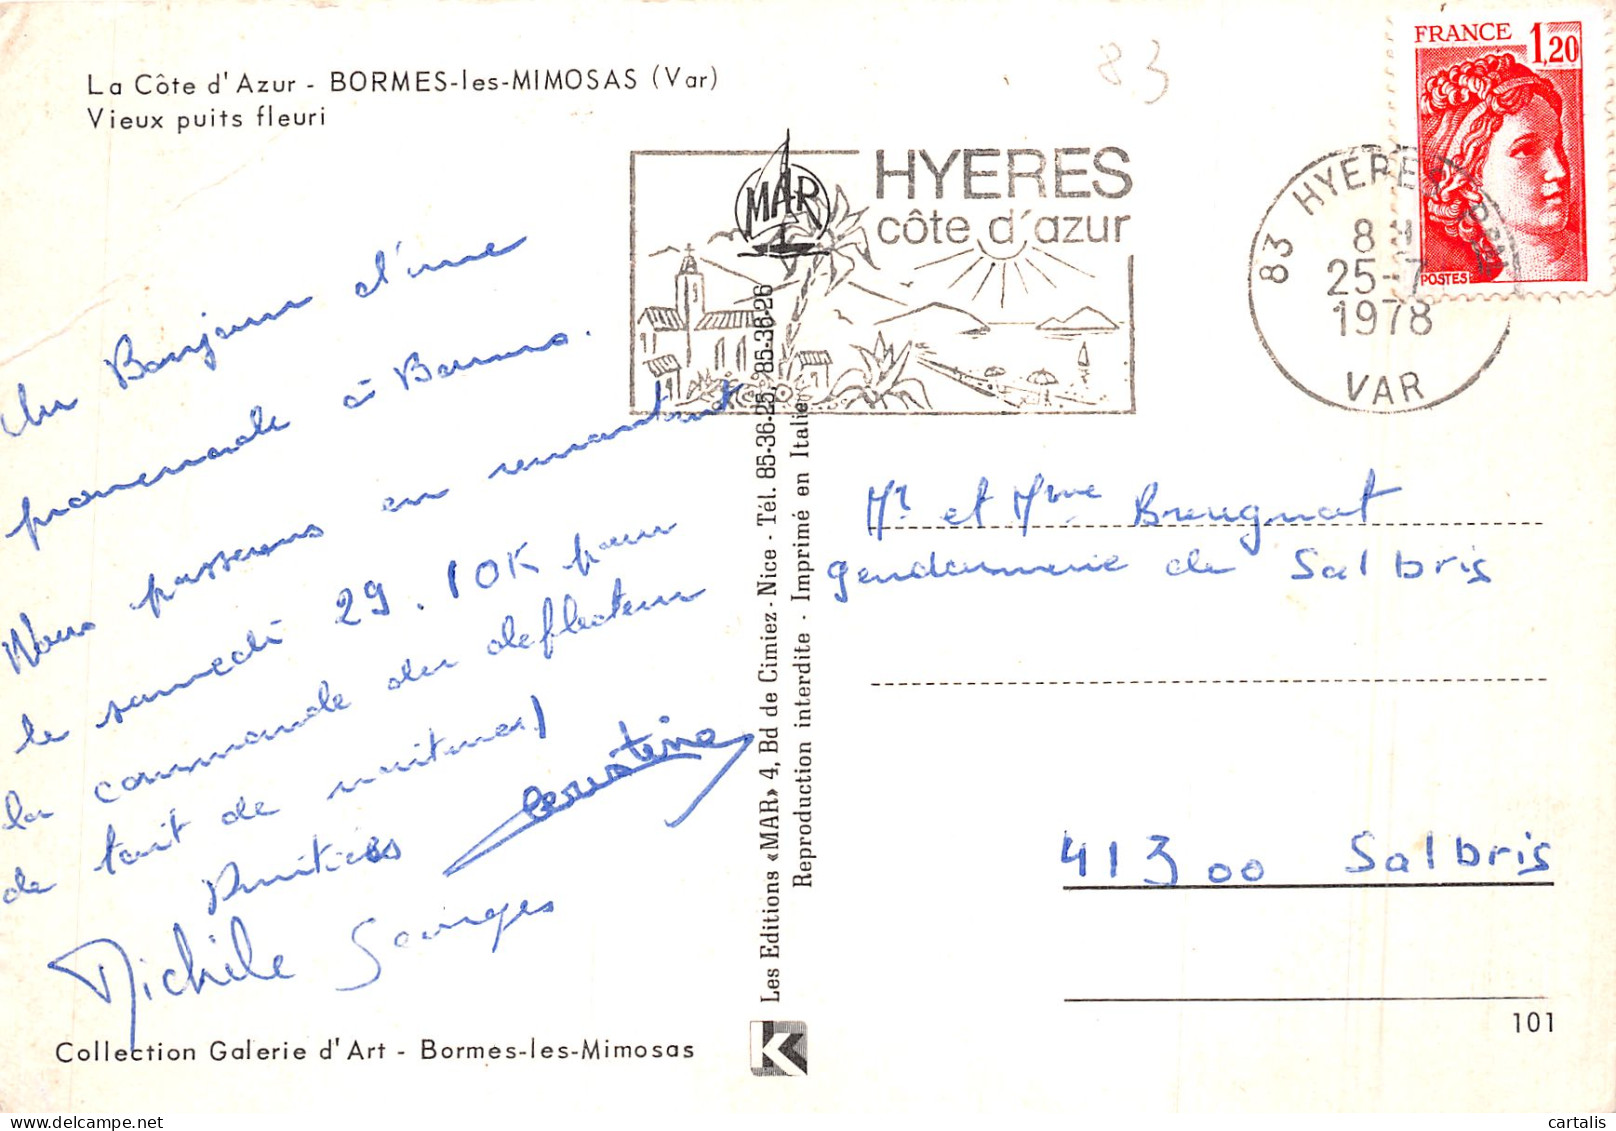 La Côte d'Azur - BORMES-les-MIMOSAS (Var)
Vieux puits fleuri
83
FRANCE 1,20
POSTES
MAR
HYERES
côte d'azur
83 HYERES
8 H
25-7
1978
VAR
Un Bonjour d'une
promenade à Bormes.
Nous passerons en remontant
le samedi 29. 10K pour
la commande du deflecteur
de tait de
Michèle Georges
Mr et Mme Breugnat
gendarmerie de Salbris
41300 Salbris
Les Editions «MAR» 4, Bd de Cimiez - Nice - Tél. 85-36-25, 85-36-26
Reproduction interdite - Imprimé en Italie
K
Collection Galerie d'Art - Bormes-les-Mimosas
101
cartalis